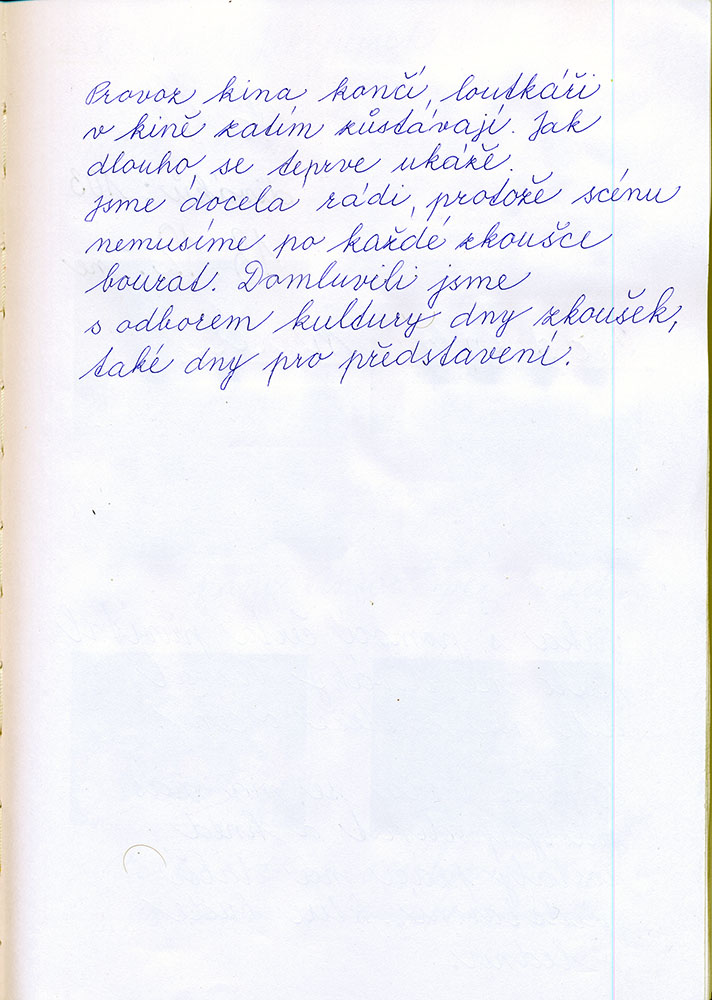 Provoz kina končí, loutkáři
v kině zatím zůstávají. Jak
dlouho, se teprve ukáže.
Jsme docela rádi, protože scénu
nemusíme po každé zkoušce
bourat. Domluvili jsme
s odborem kultury dny zkoušek,
také dny pro představení.